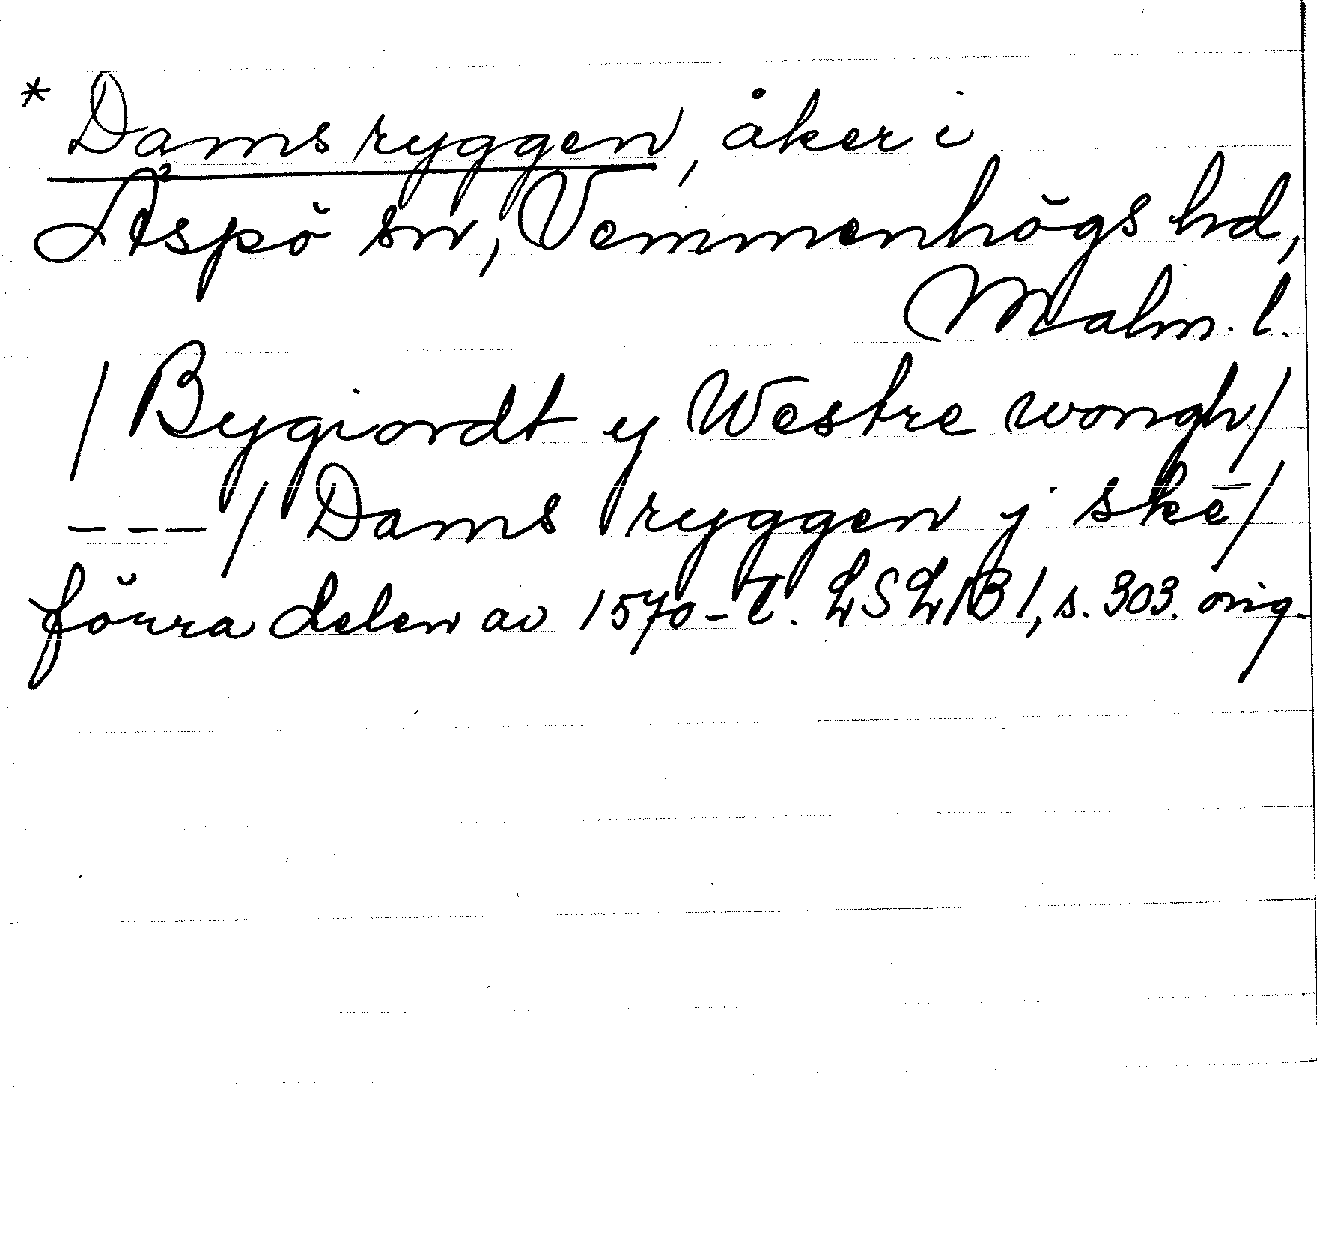 * Dams ryggen, åker i
Äspö sn, Vemmenhögs hd,
Malm. l.
/ Bygiordt y Westre wongh /
--- / Dams ryggen j skē /
förra delen av 1570-t. LSLJB 1, s. 303. orig.